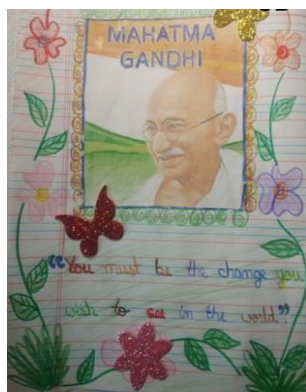 MAHATMA
GANDHI
"You must be the change you
wish to see in the world."